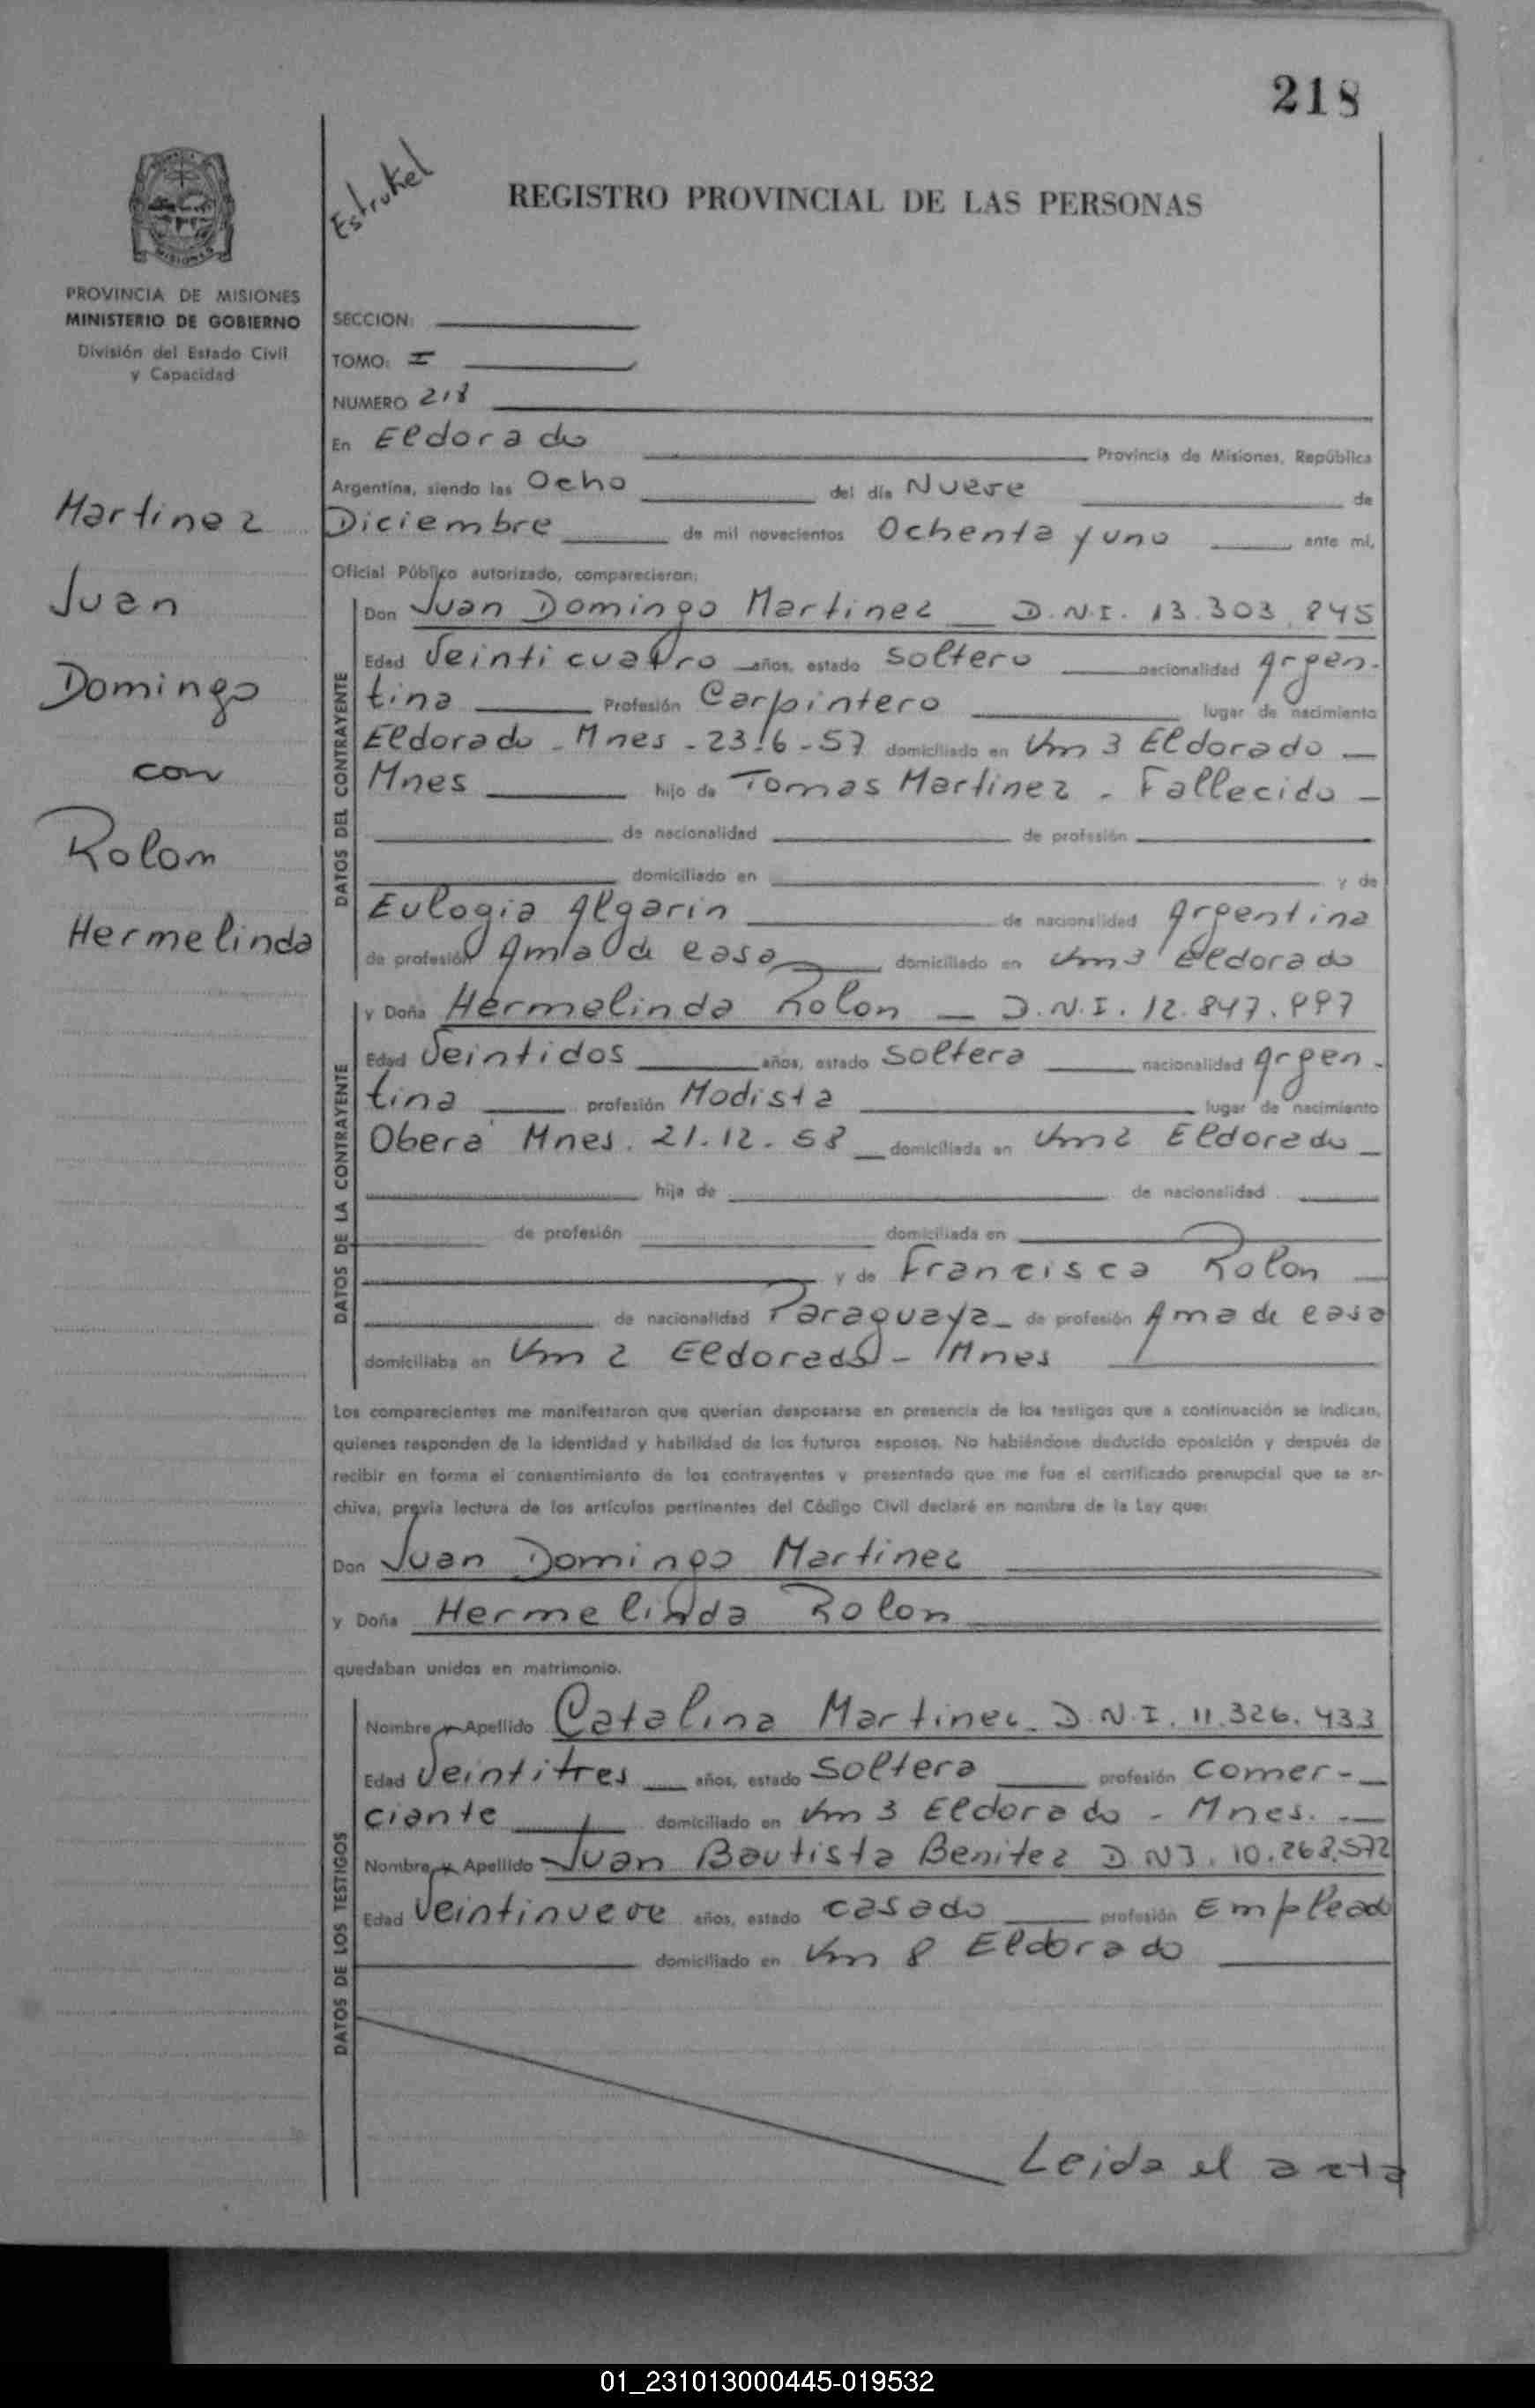 218
Estrukel
REGISTRO PROVINCIAL DE LAS PERSONAS
PROVINCIA DE MISIONES
MINISTERIO DE GOBIERNO
División del Estado Civil
y Capacidad
Martinez
Juan
Domingo
con
Rolom
Hermelinda
SECCION:
TOMO: I
NUMERO 218
En Eldorado Provincia de Misiones, República
Argentina, siendo las Ocho del día Nueve de
Diciembre de mil novecientos Ochenta y uno ante mí,
Oficial Público autorizado, comparecieron:
DATOS DEL CONTRAYENTE
Don Juan Domingo Martinez D.N.I. 13.303.845
Edad Veinticuatro años, estado Soltero nacionalidad Argen-
tina Profesión Carpintero lugar de nacimiento
Eldorado - Mnes - 23-6-57 domiciliado en Km 3 Eldorado
Mnes hijo de Tomas Martinez - Fallecido -
de nacionalidad de profesión
domiciliado en y de
Eulogia Algarin de nacionalidad Argentina
de profesión Ama de casa domiciliado en Km 3 Eldorado
DATOS DE LA CONTRAYENTE
y Doña Hermelinda Rolon D.N.I. 12.847.997
Edad Veintidos años, estado Soltera nacionalidad Argen-
tina profesión Modista lugar de nacimiento
Obera Mnes. 21.12.58 domiciliada en Km 2 Eldorado
hija de de nacionalidad
de profesión domiciliada en
y de Francisca Rolon
de nacionalidad Paraguaya de profesión Ama de casa
domiciliaba en Km 2 Eldorado - Mnes
Los comparecientes me manifestaron que querían desposarse en presencia de los testigos que a continuación se indican,
quienes responden de la identidad y habilidad de los futuros esposos. No habiéndose deducido oposición y después de
recibir en forma el consentimiento de los contrayentes y presentado que me fue el certificado prenupcial que se ar-
chiva, previa lectura de los artículos pertinentes del Código Civil declaré en nombre de la Ley que:
Don Juan Domingo Martinez
y Doña Hermelinda Rolon
quedaban unidos en matrimonio.
DATOS DE LOS TESTIGOS
Nombre y Apellido Catalina Martinez D.N.I. 11.326.433
Edad Veintitres años, estado Soltera profesión Comer-
ciante domiciliado en Km 3 Eldorado - Mnes.
Nombre y Apellido Juan Bautista Benitez D.N.I. 10.268.572
Edad Veintinueve años, estado casado profesión Empleado
domiciliado en Km 8 Eldorado
Leida el acta
01_231013000445-019532